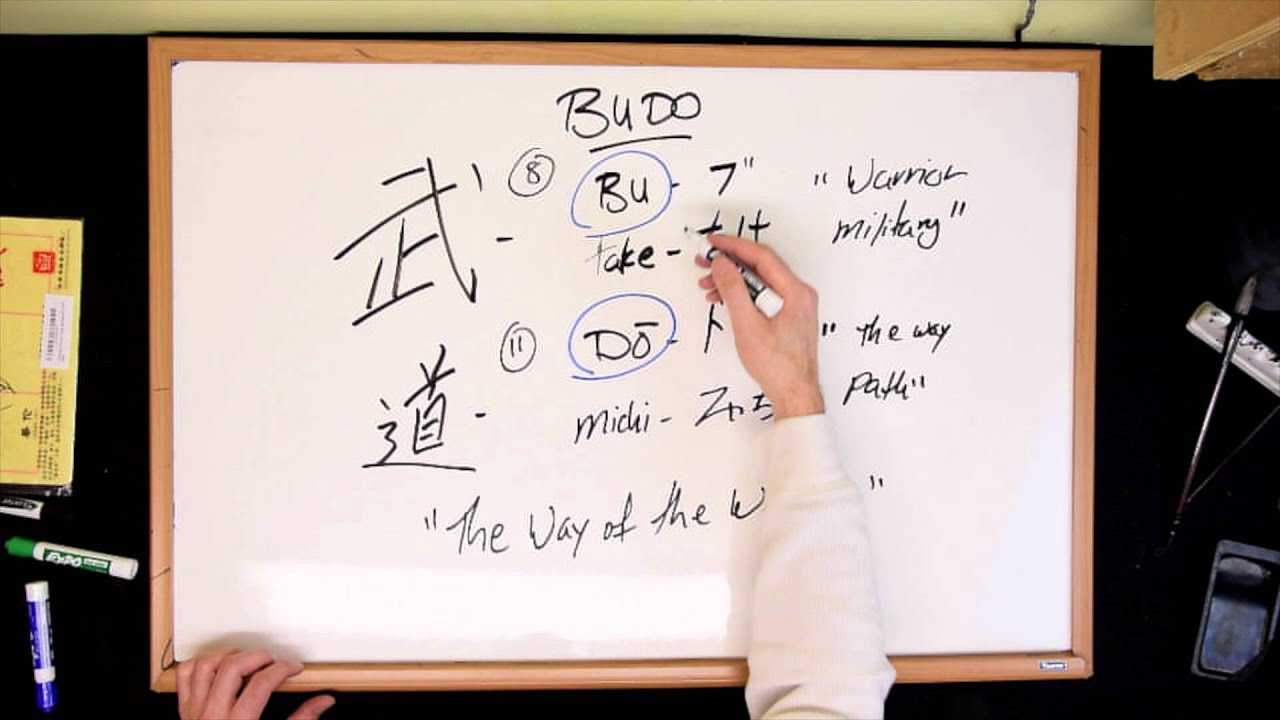 BUDO
武 - ⑧ BU - ブ " Warrior
take - military"
道 - ⑪ DŌ - ド " the way
michi - みち Path"
"The Way of the W "